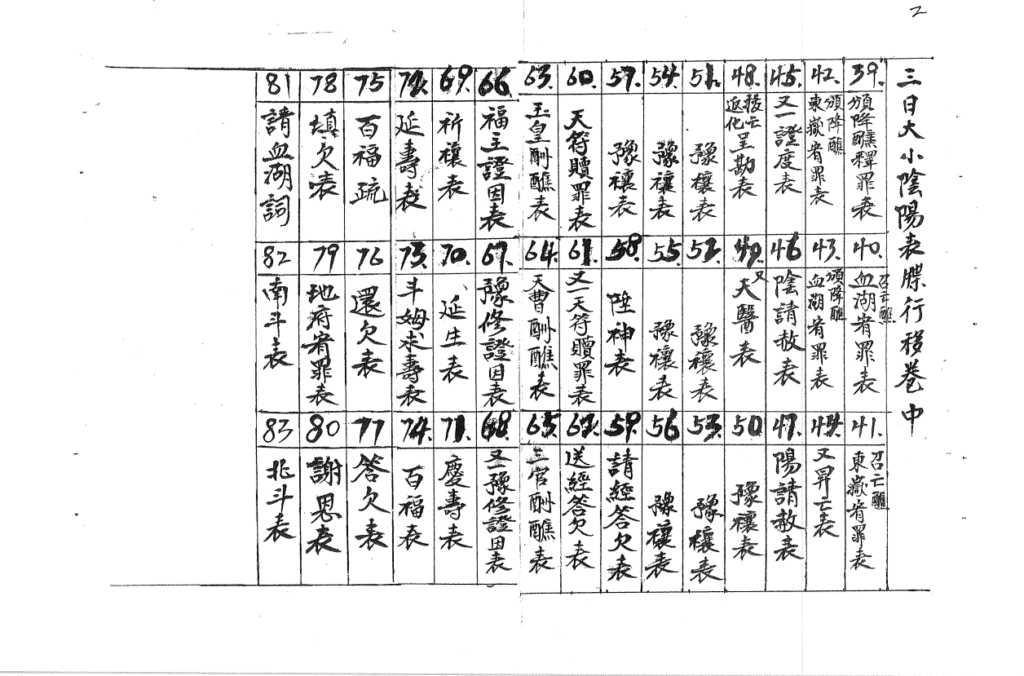 2
三日大小陰陽表牒行移卷中
39. 頒降醮釋罪表
40. 召亡醮 血湖宥罪表
41. 召亡醮 東嶽宥罪表
42. 頒降醮 東嶽宥罪表
43. 頒降醮 血湖宥罪表
44. 又昇亡表
45. 又一證度表
46 陰請赦表
47. 陽請赦表
48. 返化呈勘表
49. 又天醫表
50 豫禳表
51. 豫禳表
52. 豫禳表
53. 豫禳表
54. 豫禳表
55. 豫禳表
56 豫禳表
57. 豫禳表
58. 陞神表
59. 請經答欠表
60. 天符贖罪表
61. 又一天符贖罪表
62. 送經答欠表
63. 玉皇酬醮表
64. 天曹酬醮表
65. 三官酬醮表
66. 福主證因表
67. 豫修證因表
68. 又一豫修證因表
69. 祈禳表
70. 延生表
71. 慶壽表
72. 延壽表
73. 斗姆求壽表
74. 百福表
75 百福疏
76 還欠表
77 答欠表
78 填欠表
79 地府宥罪表
80 謝恩表
81 請血湖詞
82 南斗表
83 北斗表